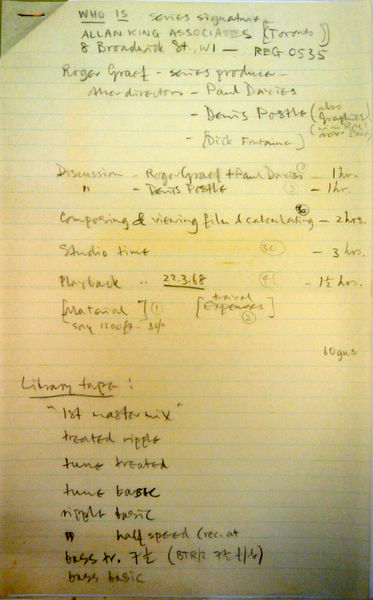 WHO IS series signature
ALLAN KING ASSOCIATES [Toronto]
8 Broadwick St, W1 — REG 0535
Roger Graef - series producer
other directors - Paul Davies
- Denis Postle (also
graphics
- [Dick Fontaine]
Discussion - Roger Graef + Paul Davies - 1 hr.
" - Denis Postle - 1 hr.
Composing & viewing film & calculating - 2 hrs.
Studio time (30) - 3 hrs.
Playback .. 22.3.68 - 1½ hrs.
[Material] (1) [travel
Expenses] (2)
(say 1200ft - 30/-
60 gns
Library tape:
"1st master mix"
treated ripple
tune treated
tune basic
ripple basic
" half speed (rec. at
bass tr. 7½ (BTR/2 7½ f/b)
bass basic